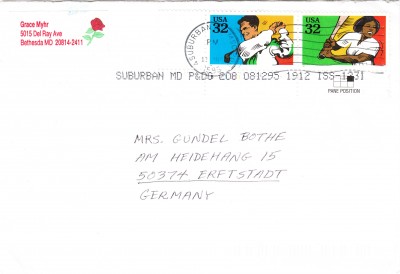 Grace Myhr
5015 Del Ray Ave
Bethesda MD 20814-2411
SUBURBAN
PM
USA
32
USA
32
SUBURBAN MD P&DC 208 081295 1912 ISS-1
PANE POSITION
MRS. GUNDEL BOTHE
AM HEIDEHANG 15
50374 ERFTSTADT
GERMANY